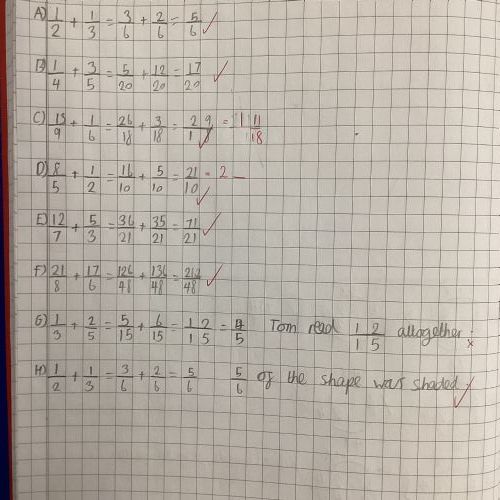 A) 1/2 + 1/3 = 3/6 + 2/6 = 5/6 ✓
B) 1/4 + 3/5 = 5/20 + 12/20 = 17/20 ✓
C) 13/9 + 1/6 = 26/18 + 3/18 = 29/18 = 1 11/18 ✓
D) 8/5 + 1/2 = 16/10 + 5/10 = 21/10 = 2 – ✓
E) 12/7 + 5/3 = 36/21 + 35/21 = 71/21 ✓
F) 21/8 + 17/6 = 126/48 + 136/48 = 262/48 ✓
G) 1/3 + 2/5 = 5/15 + 6/15 = 12/15 = 4/5 Tom read 12/15 altogether. x
H) 1/2 + 1/3 = 3/6 + 2/6 = 5/6 5/6 of the shape was shaded ✓